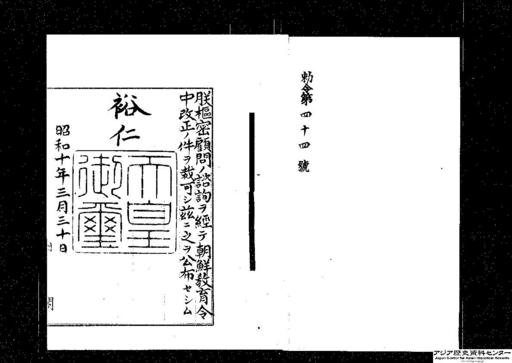 勅令第四十四號
朕樞密顧問ノ諮詢ヲ經テ朝鮮教育令
中改正ノ件ヲ裁可シ茲ニ之ヲ公布セシム
裕仁
天皇
御璽
昭和十年三月三十日
アジア歴史資料センター
Japan Center for Asian Historical Records